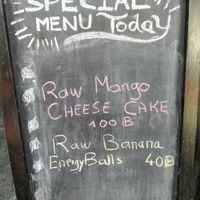 SPECIAL
MENU Today
Raw Mango
CHEESE CAKE
100฿
Raw Banana
EnergyBalls 40฿